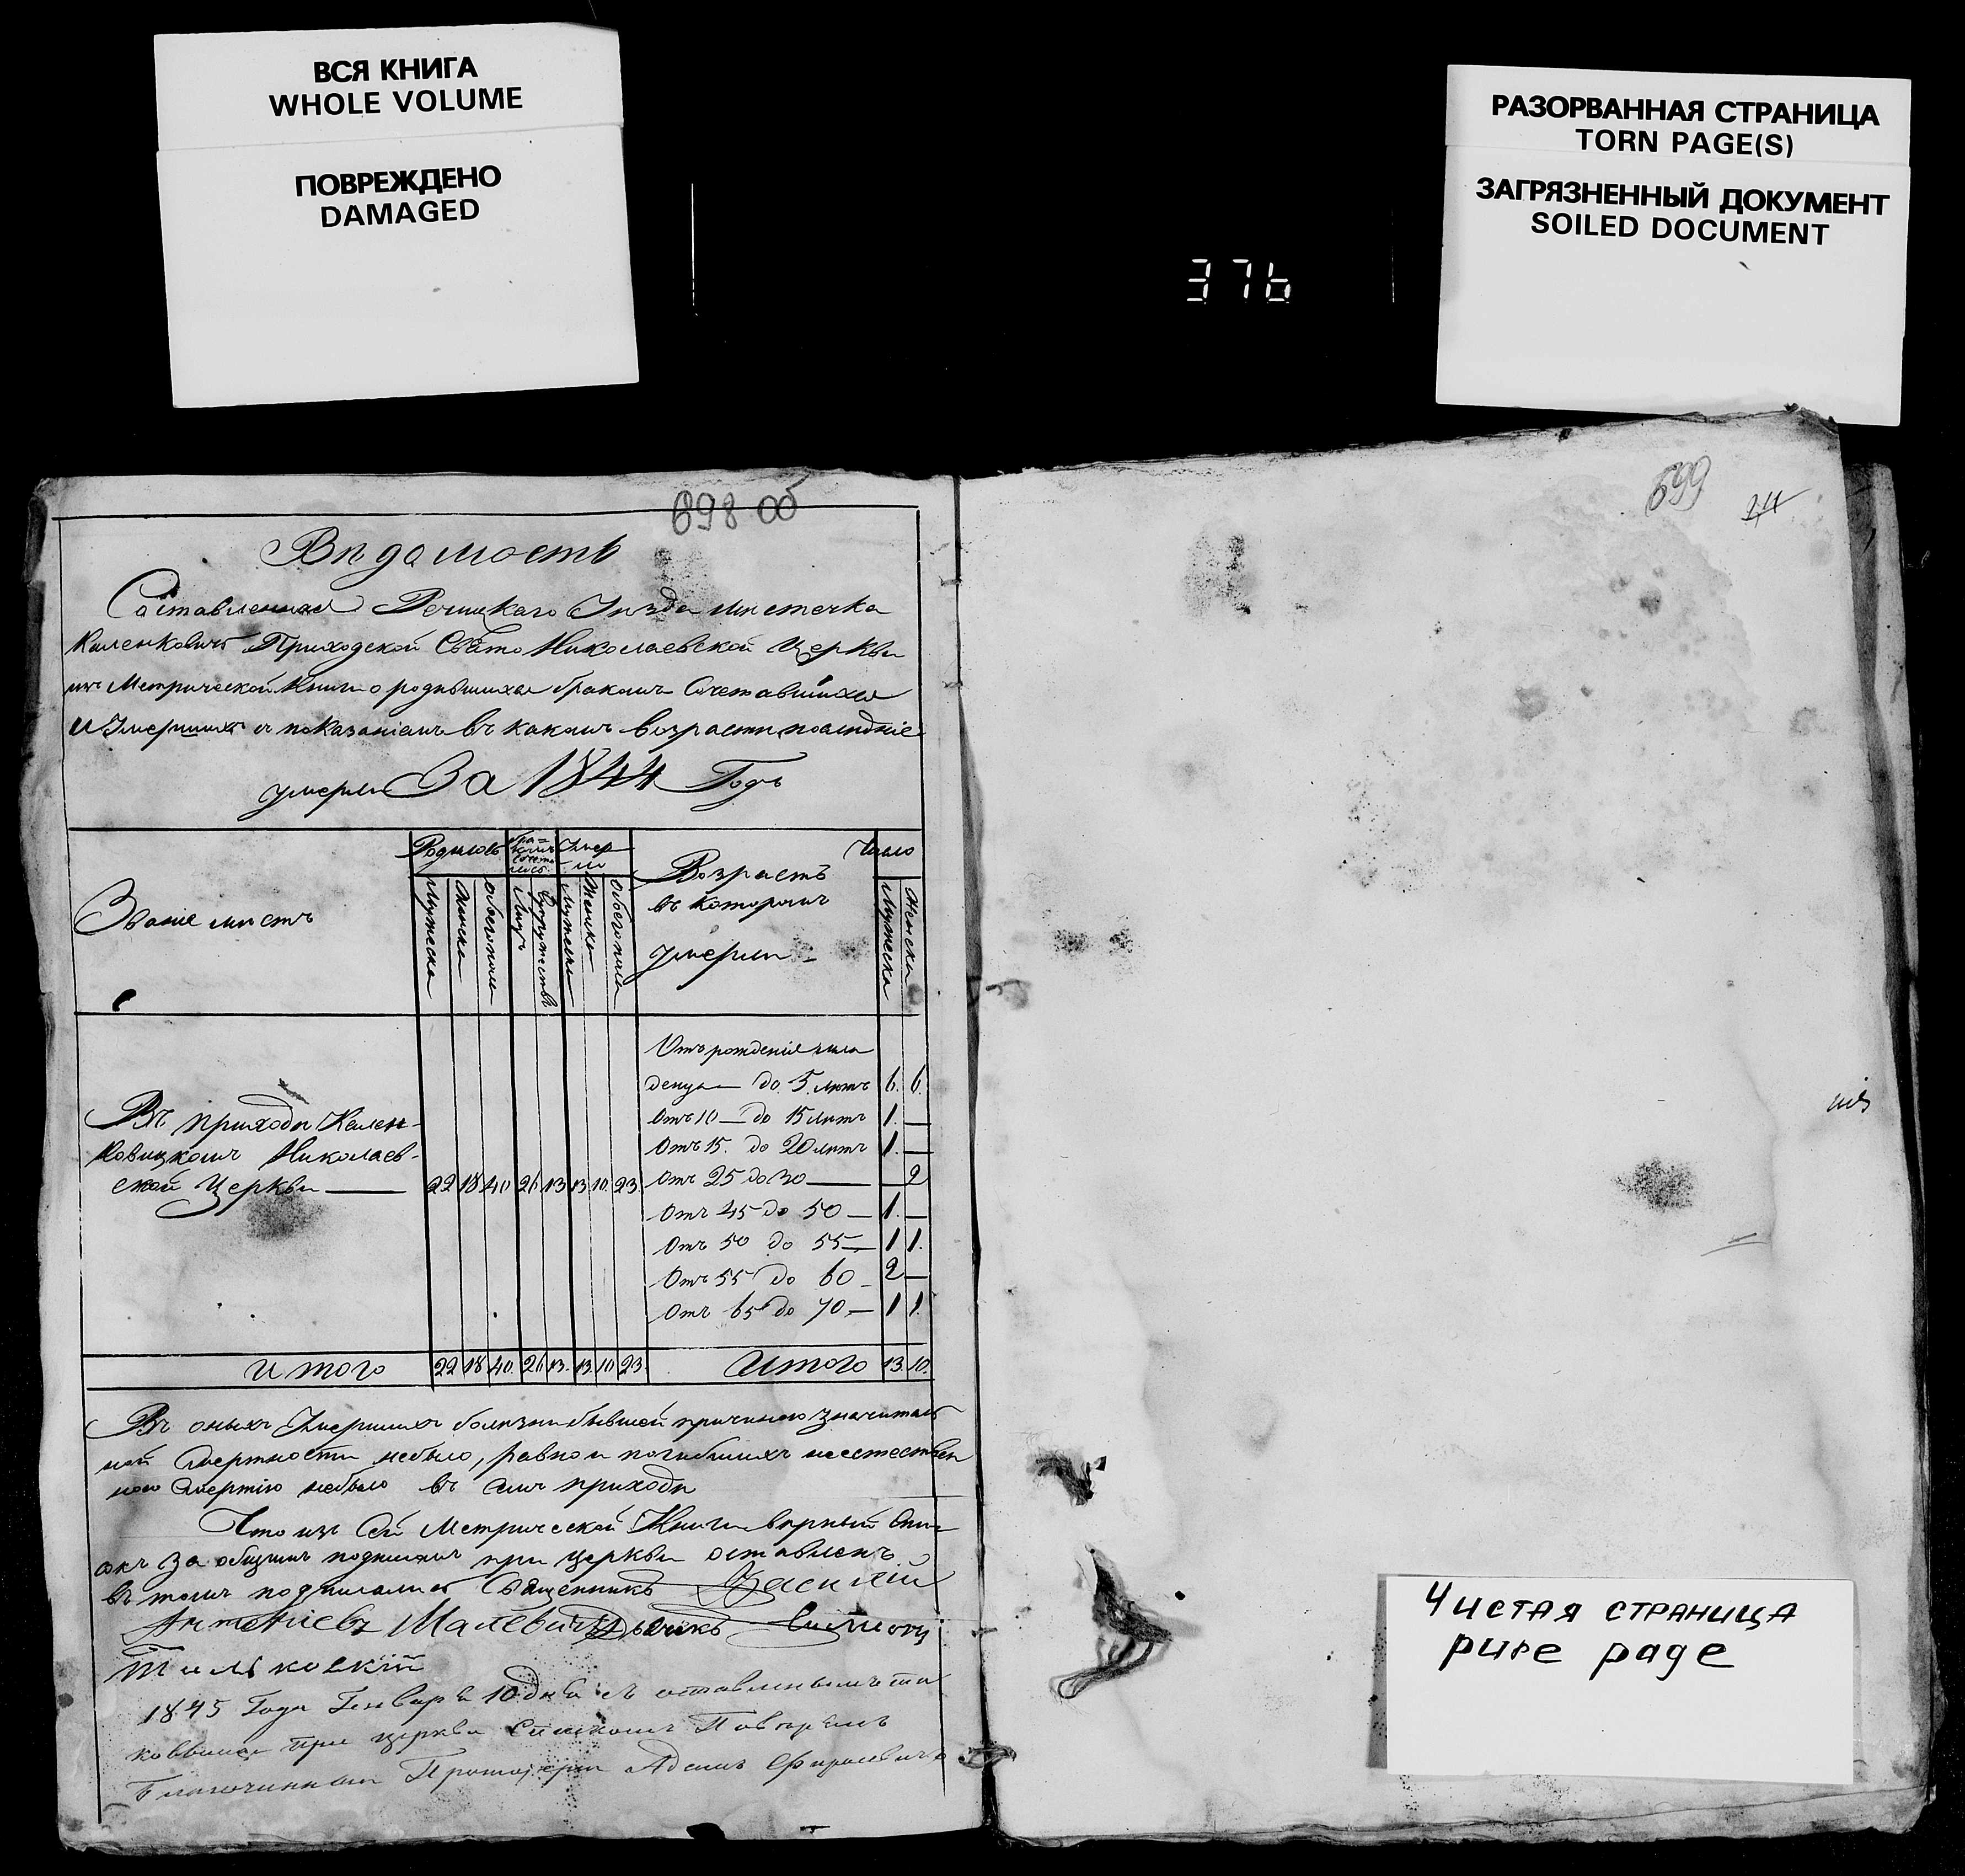 ВСЯ КНИГА
WHOLE VOLUME
ПОВРЕЖДЕНО
DAMAGED
РАЗОРВАННАЯ СТРАНИЦА
TORN PAGE(S)
ЗАГРЯЗНЕННЫЙ ДОКУМЕНТ
SOILED DOCUMENT
376
698 об
Вѣдомость
Составленная Речицкаго Уѣзда мѣстечка
Каленковичъ Приходской Свято Николаевской Церкви
изъ Метрической Книги о родившихся бракомъ Сочетавшихся
и Умершихъ съ показаніемъ въ какомъ возрастѣ послѣдніе
умерли За 1844 Годъ
Званіе мѣстъ
Родилось
Мужеска
Женска
Обоего пола
Лицъ
Супружествъ
Умер
ли
Мужеска
Женска
Обоего пола
Возрастъ
въ которомъ
умерли
Число
Мужеска
Женска
Отъ рожденія
до 5. лѣтъ 6. 6.
Отъ 10 — до 15 лѣтъ 1. —
Отъ 15. до 20 лѣтъ 1. —
Отъ 25 до 30 — — 2
Отъ 45 до 50 — 1. —
Отъ 50 до 55 — 1 1.
Отъ 55 до 60 — 2 —
Отъ 65 до 70 — 1 1.
Въ приходѣ Кален-
ковицкомъ Николаев-
ской Церкви — 22 18 40 26 13 13 10. 23.
Итого 22 18 40. 26 13. 13. 10 23. Итого 13. 10.
Въ оныхъ Умершихъ болѣзни бывшей причиною значитель
ной Смертности небыло, равно и погибшихъ неестествен
ною Смертію небыло въ семъ приходѣ
Что изъ Сей Метрической Книги вѣрный Спи-
сокъ за общимъ подписомъ при церкви оставленъ
въ томъ подписались Священникъ Василій
Антоніевъ Малевичъ Дьячкъ
1845 Года Генваря 10 дня съ оставленнымъ та
ковымъ при церкви Спискомъ
Благочинный Протоіерей Адамъ
699
24
Чистая страница
pure page